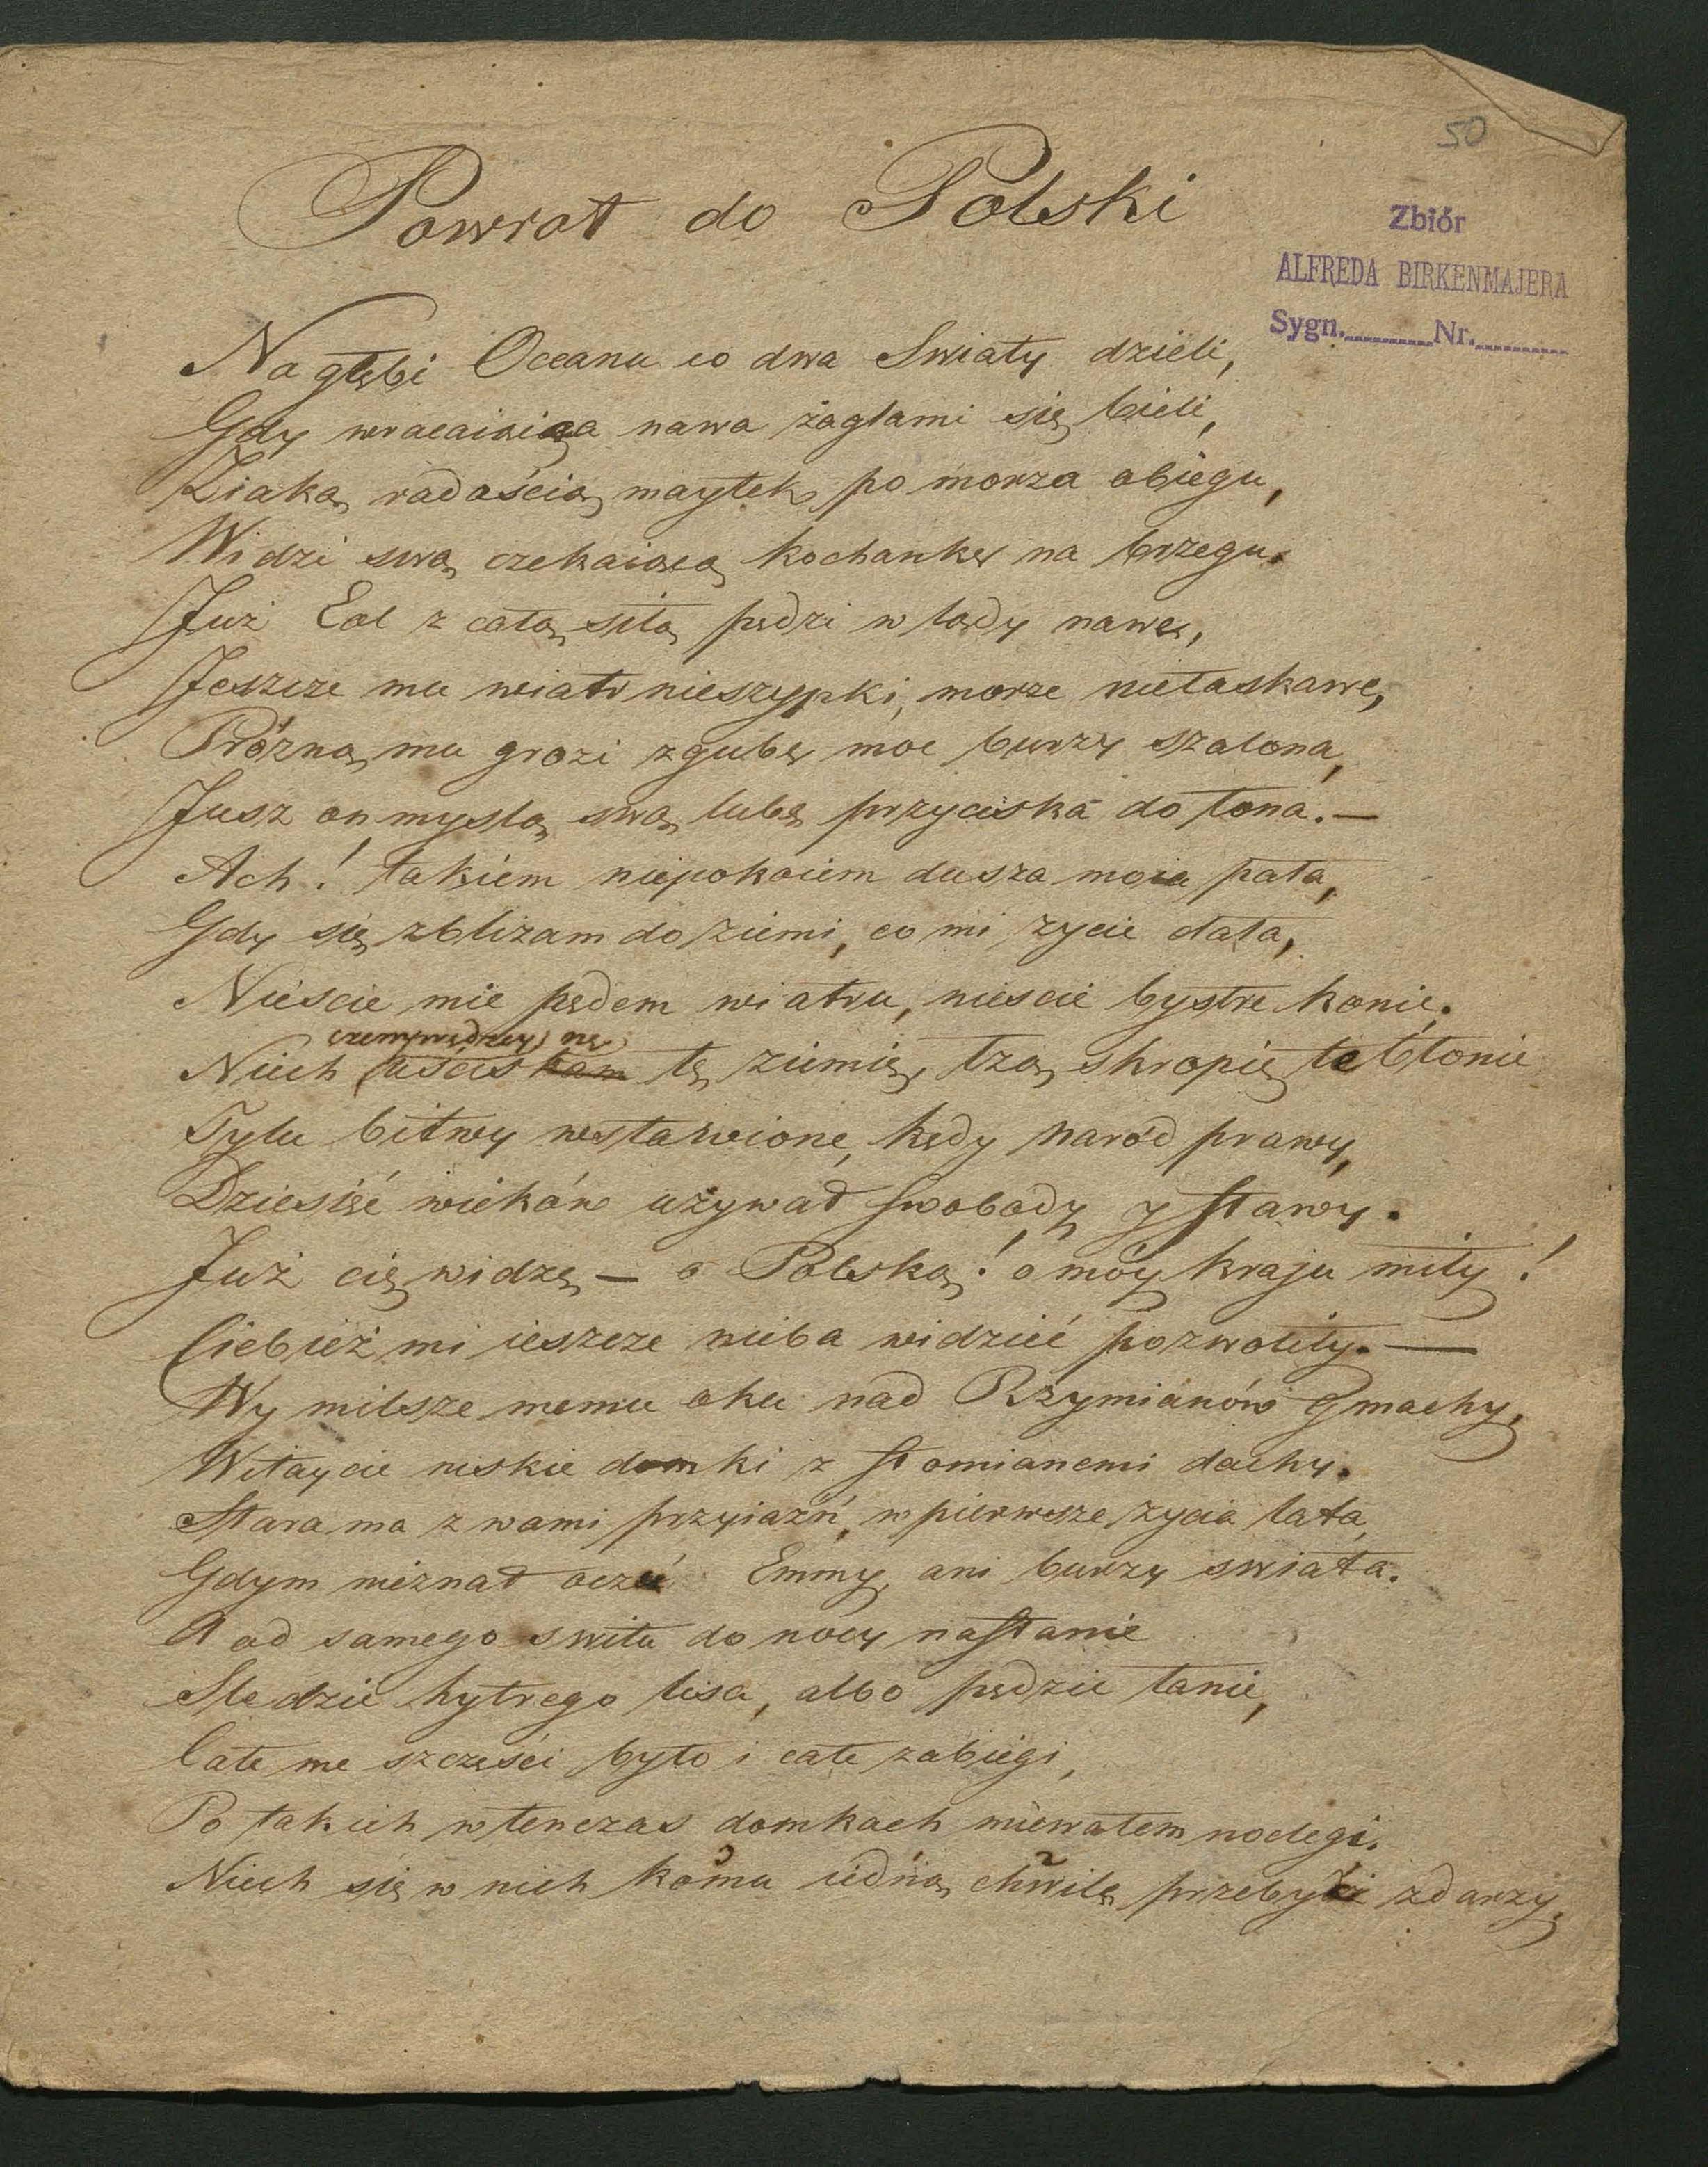 50
Powrot do Polski
Zbiór
ALFREDA BIRKENMAJERA
Sygn. Nr.
Na głębi Oceanu co dwa Swiaty dzieli,
Gdy wracaiąca nawa żaglami się bieli,
Ziaką radością maytek po morza obiegu,
Widzi swą czekaiącą kochankę na brzegu.
Już Eol z całą siłą pędzi w lądy nawę,
Jeszcze mu wiatr nieszypki, morze niełaskawe,
Próżną mu grozi zgubę moc burzy szalona,
Jusz on myslą swą lubę przyciska do łona. —
Ach! takiém niepokoiem dusza moia pała,
Gdy się zbliżam do ziemi, co mi zycie dała,
Nieście mie pędem wiatru, niescie bystre konie.
czemprędzey nę
Niech uściskam tę ziemię, łzą skropię te błonie
Tylu bitwy wsławione, kędy naród prawy,
Dziesięć wieków używał swobody y sławy.
Już cię widzę — o Polską! o móy kraju miły!
Ciebież mi ieszcze nieba widzieć pozwoliły. —
Wy milsze memu oku nad Rzymianów Gmachy,
Witaycie niskie domki z słomianemi dachy.
Stara ma z wami przyiaźń, w pierwsze życia lata,
Gdym nieznał oczu Emmy, ani burzy swiata.
A od samego switu do nocy nastanie
Sledzie hytrego lisa, albo pędzie łanie,
Całe me szczęści było i całe zabiegi,
Po takich wtenczas domkach miewałem noclegi.
Niech się w nich komu iedną chwilę przebydź zdarzy,